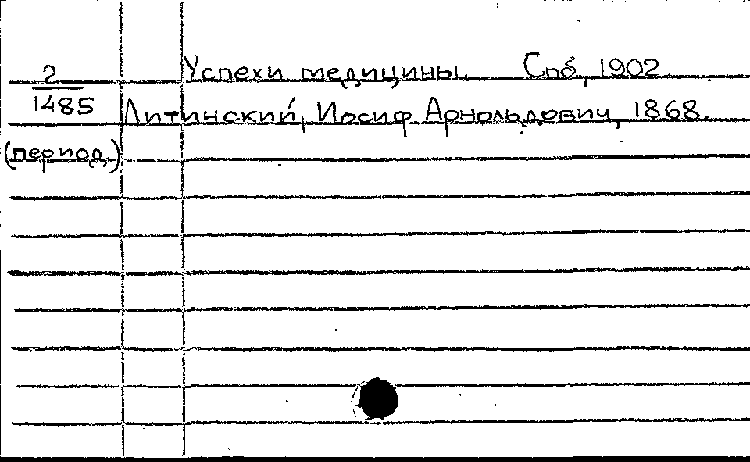 2 Успехи медицины. Спб, 1902
1485 Литинский, Иосиф Арнольдович, 1868.
(период.)